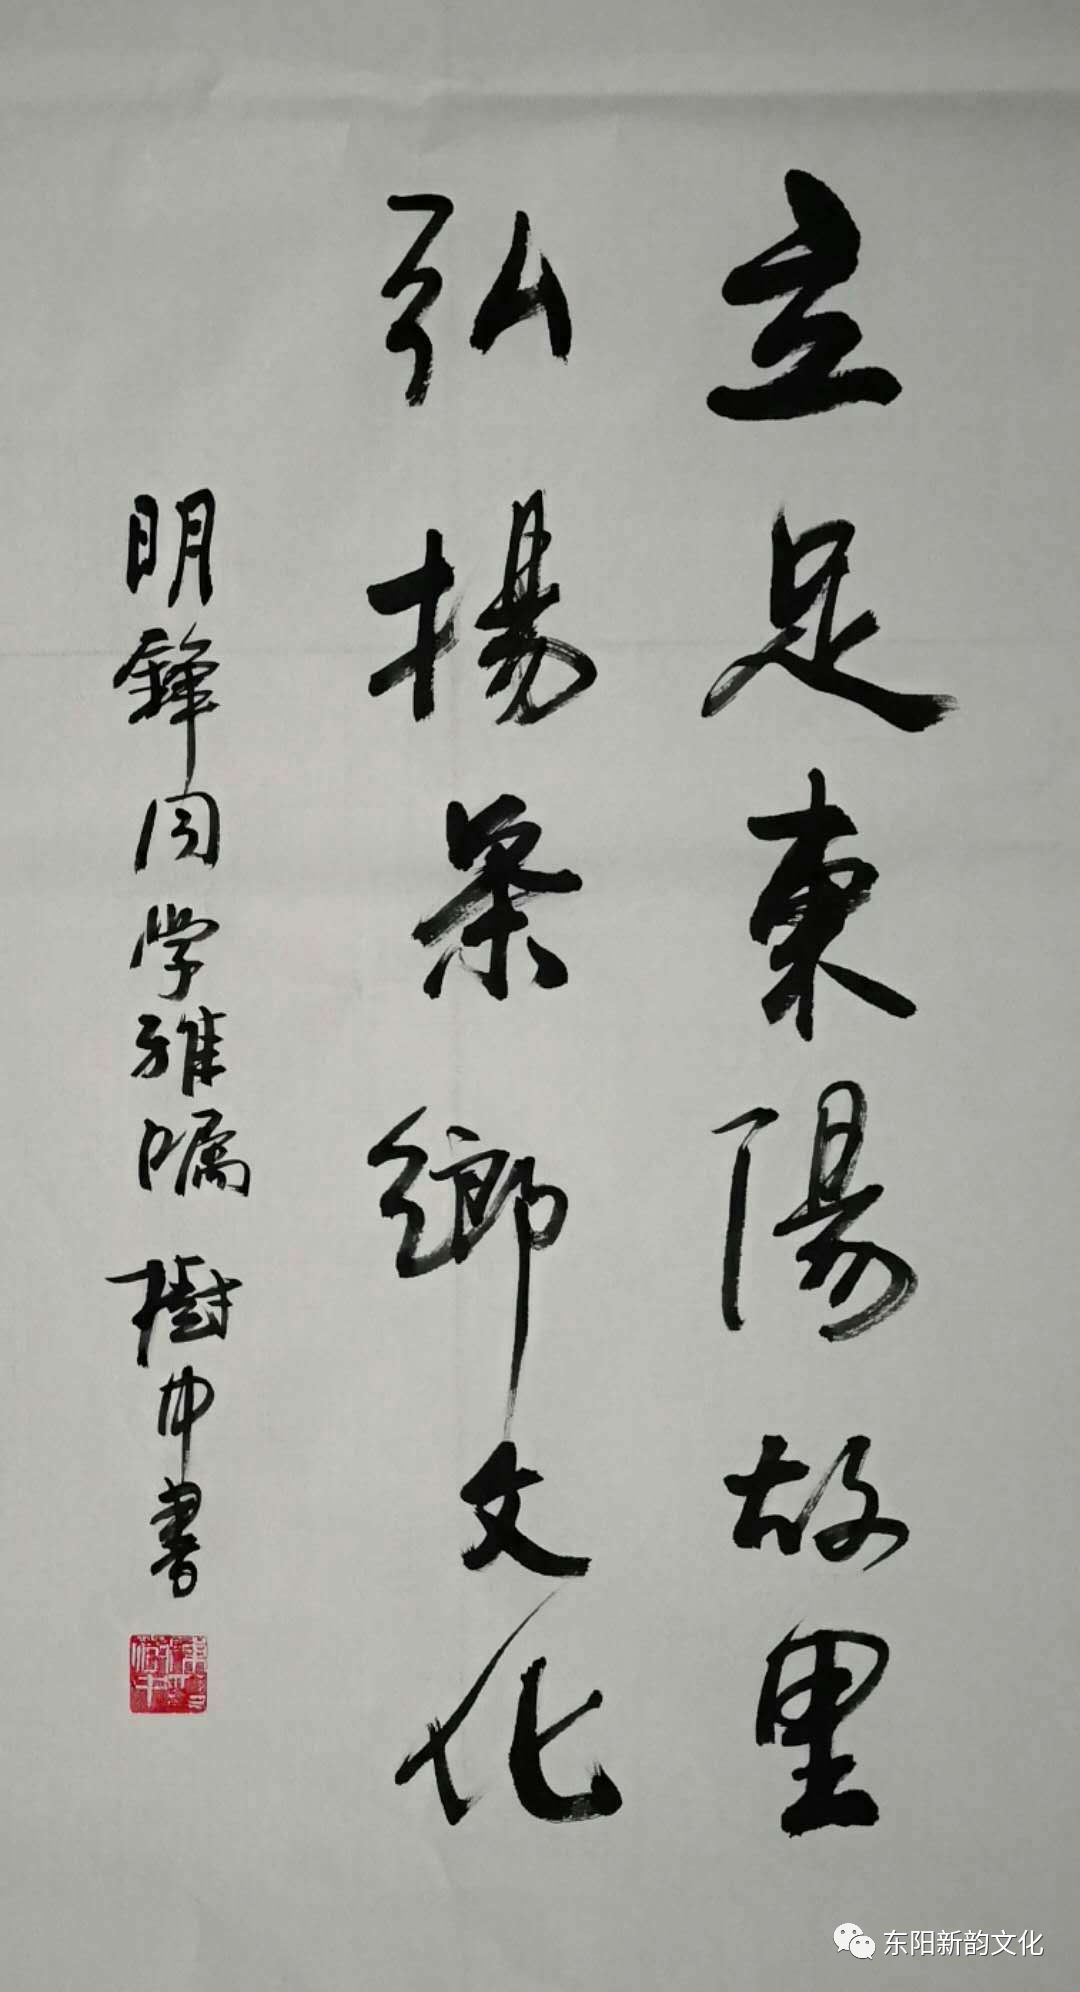 立足東陽故里
弘揚鄉文化
明鋒同学雅嘱 樹中書
东阳新韵文化